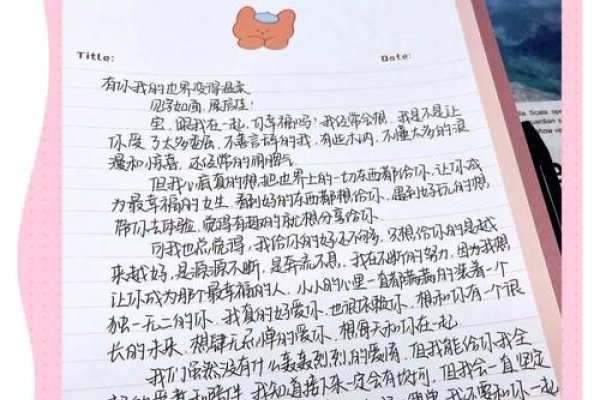 Title:
Date:
有你我的世界变得温柔
见字如面,展信佳!
宝,跟我在一起,你幸福吗?我经常会想,我是不是让
你受了太多委屈,不善言辞的我,有些木讷,不懂太多的浪
漫和惊喜,还经常的闹脾气
但我心底真的想把世界上的一切东西都给你,让你成
为最幸福的女生,看到好的东西都想给你,遇到好玩的想
带你去体验,觉得有趣的就想分享给你
可我也总觉得,我给你的好还不够多,只想给你的是越
来越好,是源源不断,是奔流不息,我在不断的努力,因为我想
让你成为那个最幸福的人,小小的心里一直都满满的装着一个
独一无二的你,我真的好爱你,也很依赖你,想和你有一个很
长的未来,想肆无忌惮的爱你,想每天和你在一起
我们虽然没有什么轰轰烈烈的爱情,但我能给你我全
部的爱意和陪伴,我知道接下来一定会有坎坷,但我会一直坚定
我不要和你一起
la Scala ope
show ve